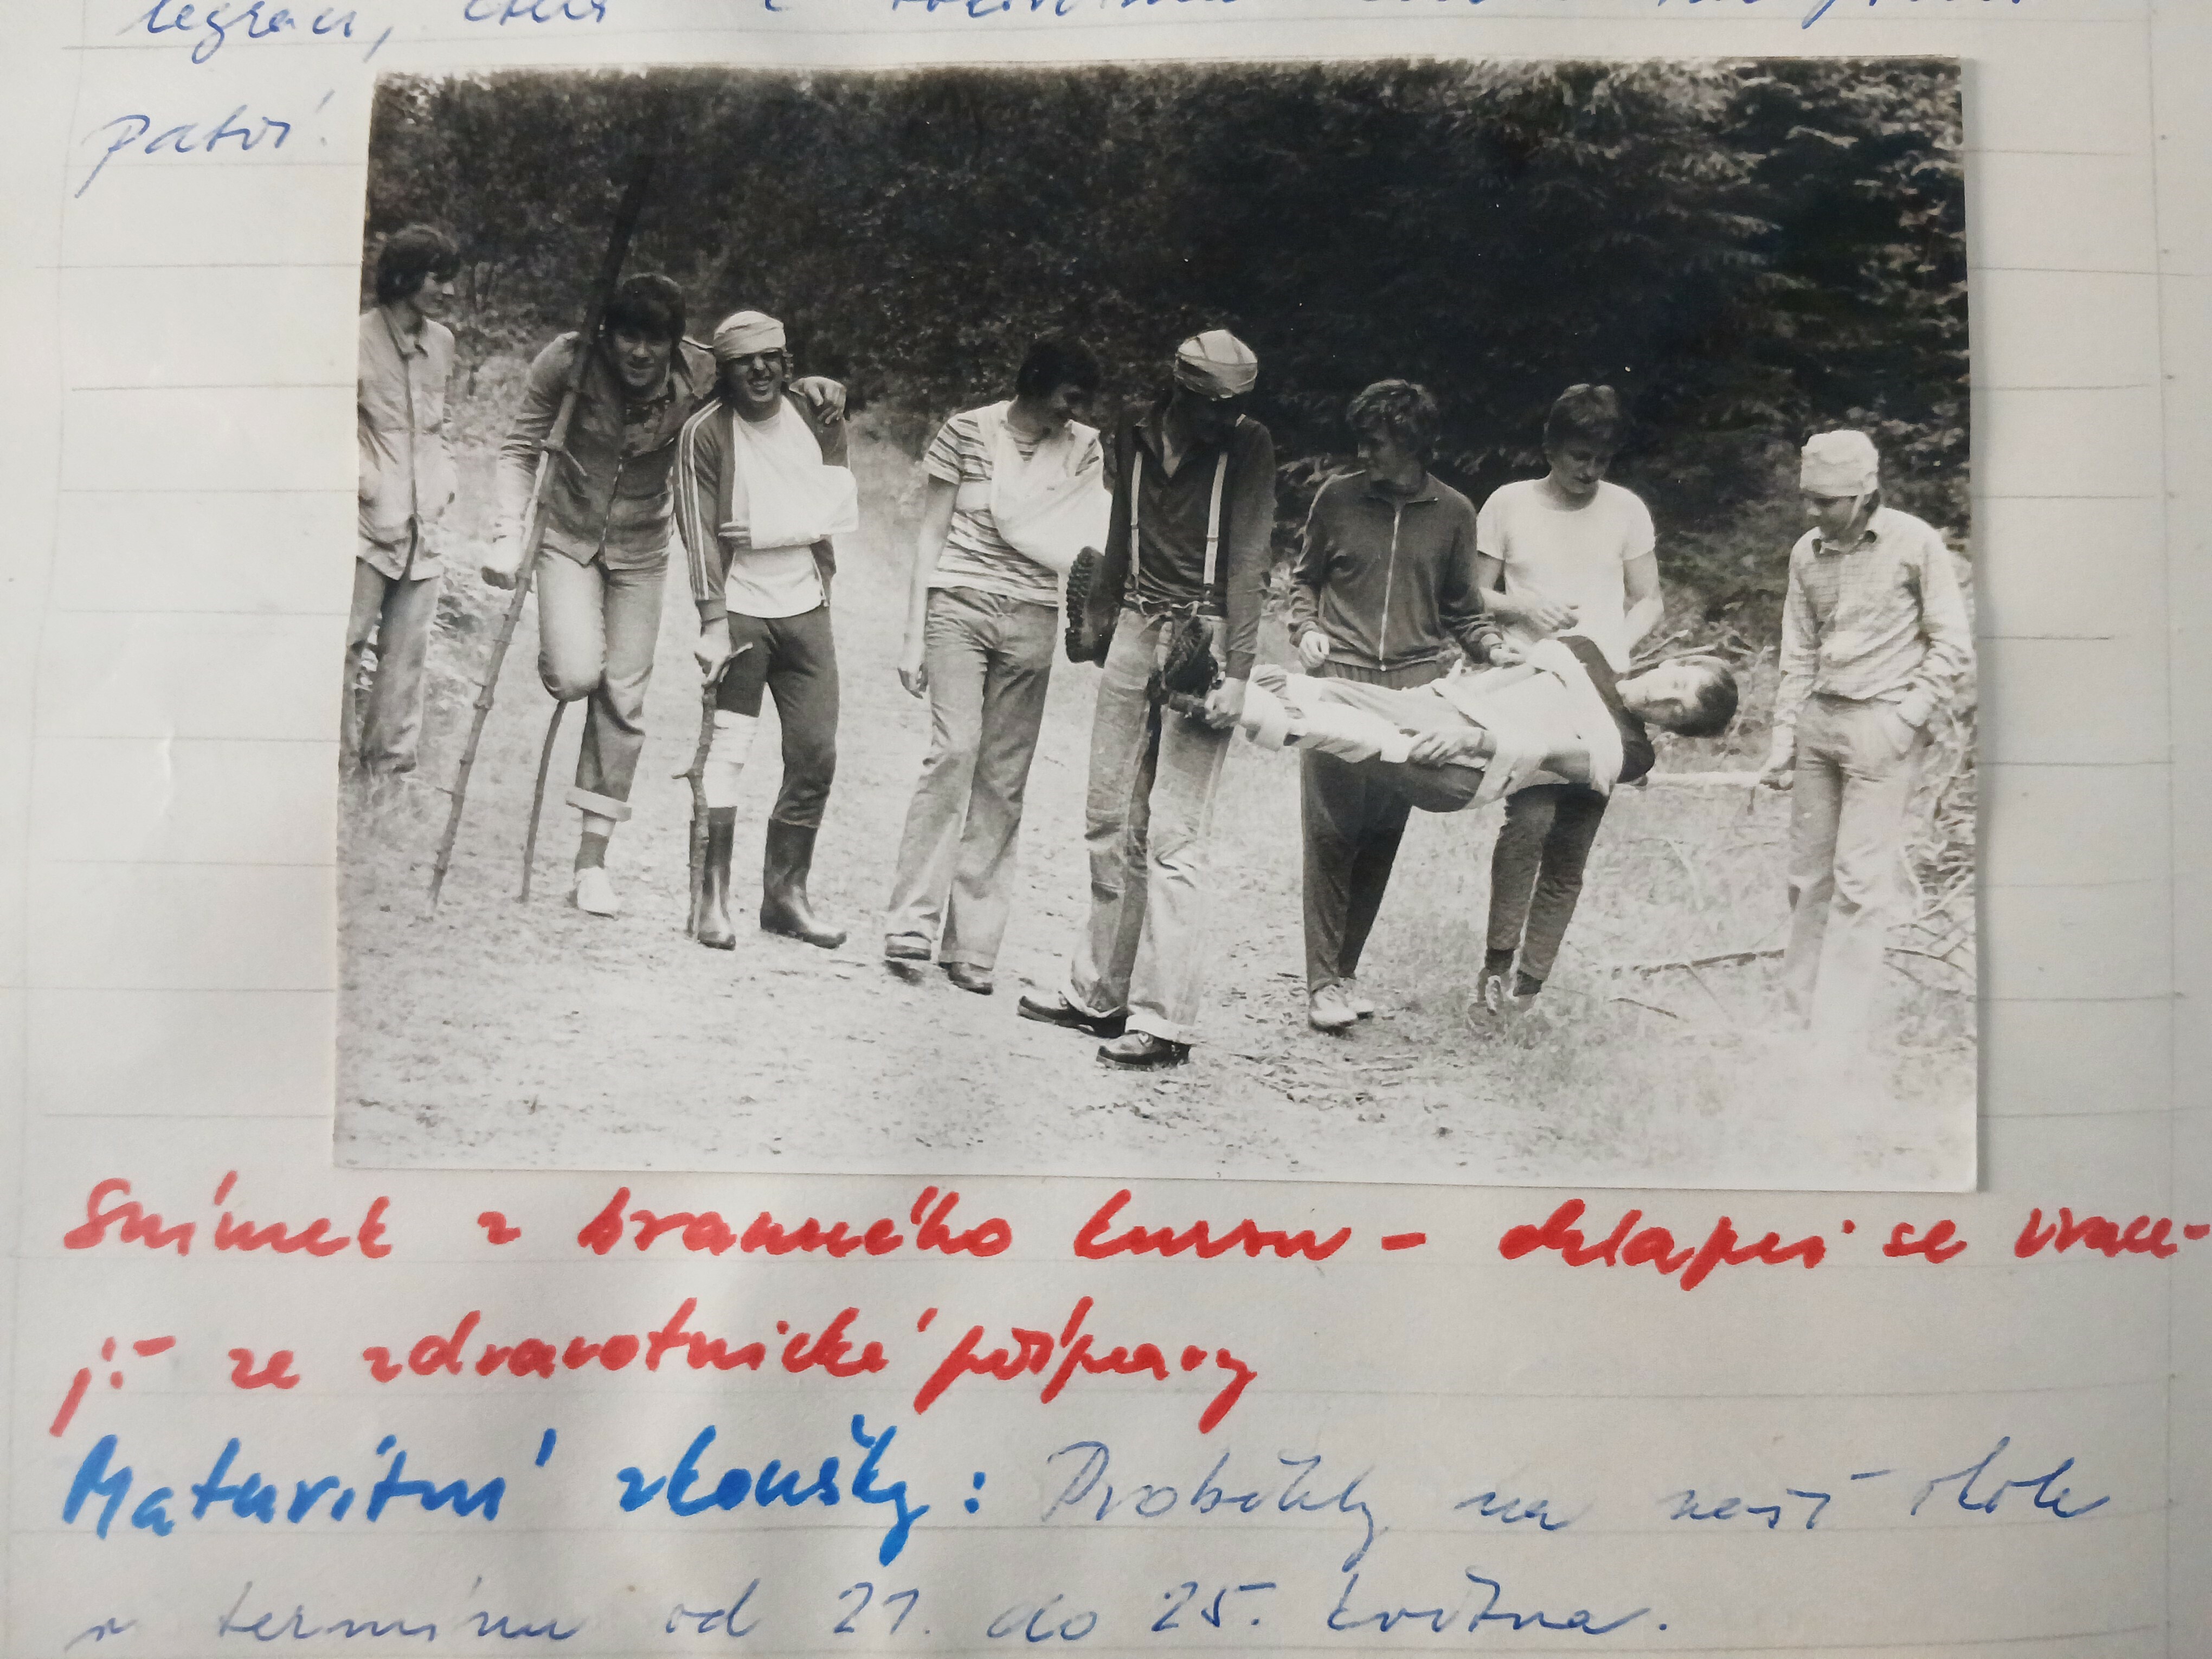 legraci,
patří.
Snímek z branného kursu - chlapci se vrace-
jí ze zdravotnické přípravy
Maturitní zkoušky: Proběhly na naší škole
v termínu od 21. do 25. května.